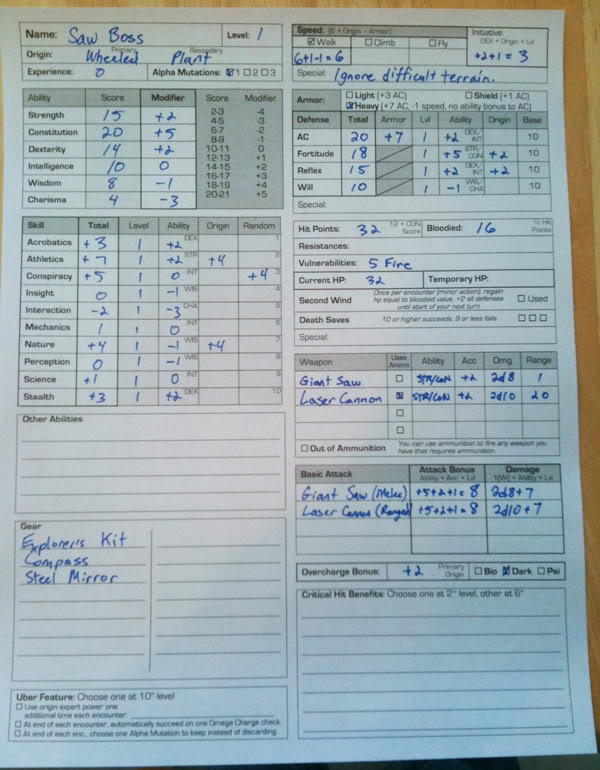 Name: Saw Boss Level: 1
Origin: Primary Wheeled Secondary Plant
Experience: 0 Alpha Mutations: ☑1 ☐2 ☐3
Ability Score Modifier Score Modifier
Strength 15 +2
Constitution 20 +5
Dexterity 14 +2
Intelligence 10 0
Wisdom 8 -1
Charisma 4 -3
2-3 -4
4-5 -3
6-7 -2
8-9 -1
10-11 0
12-13 +1
14-15 +2
16-17 +3
18-19 +4
20-21 +5
Skill Total Level Ability Origin Random
Acrobatics +3 1 +2 DEX 1
Athletics +7 1 +2 STR +4 2
Conspiracy +5 1 0 INT +4 3
Insight 0 1 -1 WIS 4
Interaction -2 1 -3 CHA 5
Mechanics 1 1 0 INT 6
Nature +4 1 -1 WIS +4 7
Perception 0 1 -1 WIS 8
Science +1 1 0 INT 9
Stealth +3 1 +2 DEX 10
Other Abilities
Gear
Explorer's Kit
Compass
Steel Mirror
Uber Feature: Choose one at 10th level
☐ Use origin expert power one
additional time each encounter:
☐ At end of each encounter, automatically succeed on one Omega Charge check
☐ At end of each enc., choose one Alpha Mutation to keep instead of discarding
Speed: (6 + Origin - Armor)
☑ Walk ☐ Climb ☐ Fly
6+1-1=6
Initiative
DEX + Origin + Lvl
+2+1 = 3
Special: Ignore difficult terrain.
Armor: ☐ Light (+3 AC) ☐ Shield (+1 AC)
☑ Heavy (+7 AC, -1 speed, no ability bonus to AC)
Defense Total Armor Lvl Ability Origin Base
AC 20 +7 1 +2 DEX/INT 10
Fortitude 18 1 +5 STR/CON +2 10
Reflex 15 1 +2 DEX/INT +2 10
Will 10 1 -1 WIS/CHA 10
Special:
Hit Points: 32 12 + CON Score Bloodied: 16 ½ Hit Points
Resistances:
Vulnerabilities: 5 Fire
Current HP: 32 Temporary HP:
Second Wind Once per encounter (minor action), regain
hp equal to bloodied value, +2 all defenses
until start of your next turn ☐ Used
Death Saves 10 or higher succeeds, 9 or less fails ☐☐☐
Special:
Weapon Uses Ammo Ability Acc Dmg Range
Giant Saw ☐ STR/CON +2 2d8 1
Laser Cannon ☒ STR/CON +2 2d10 20
☐
☐
☐ Out of Ammunition You can use ammunition to fire any weapon you
have that requires ammunition.
Basic Attack Attack Bonus Ability + Acc + Lvl Damage 1[W] + Ability + Lvl
Giant Saw (Melee) +5+2+1=8 2d8+7
Laser Cannon (Ranged) +5+2+1=8 2d10+7
Overcharge Bonus: +2 Primary Origin ☐ Bio ☒ Dark ☐ Psi
Critical Hit Benefits: Choose one at 2nd level, other at 6th